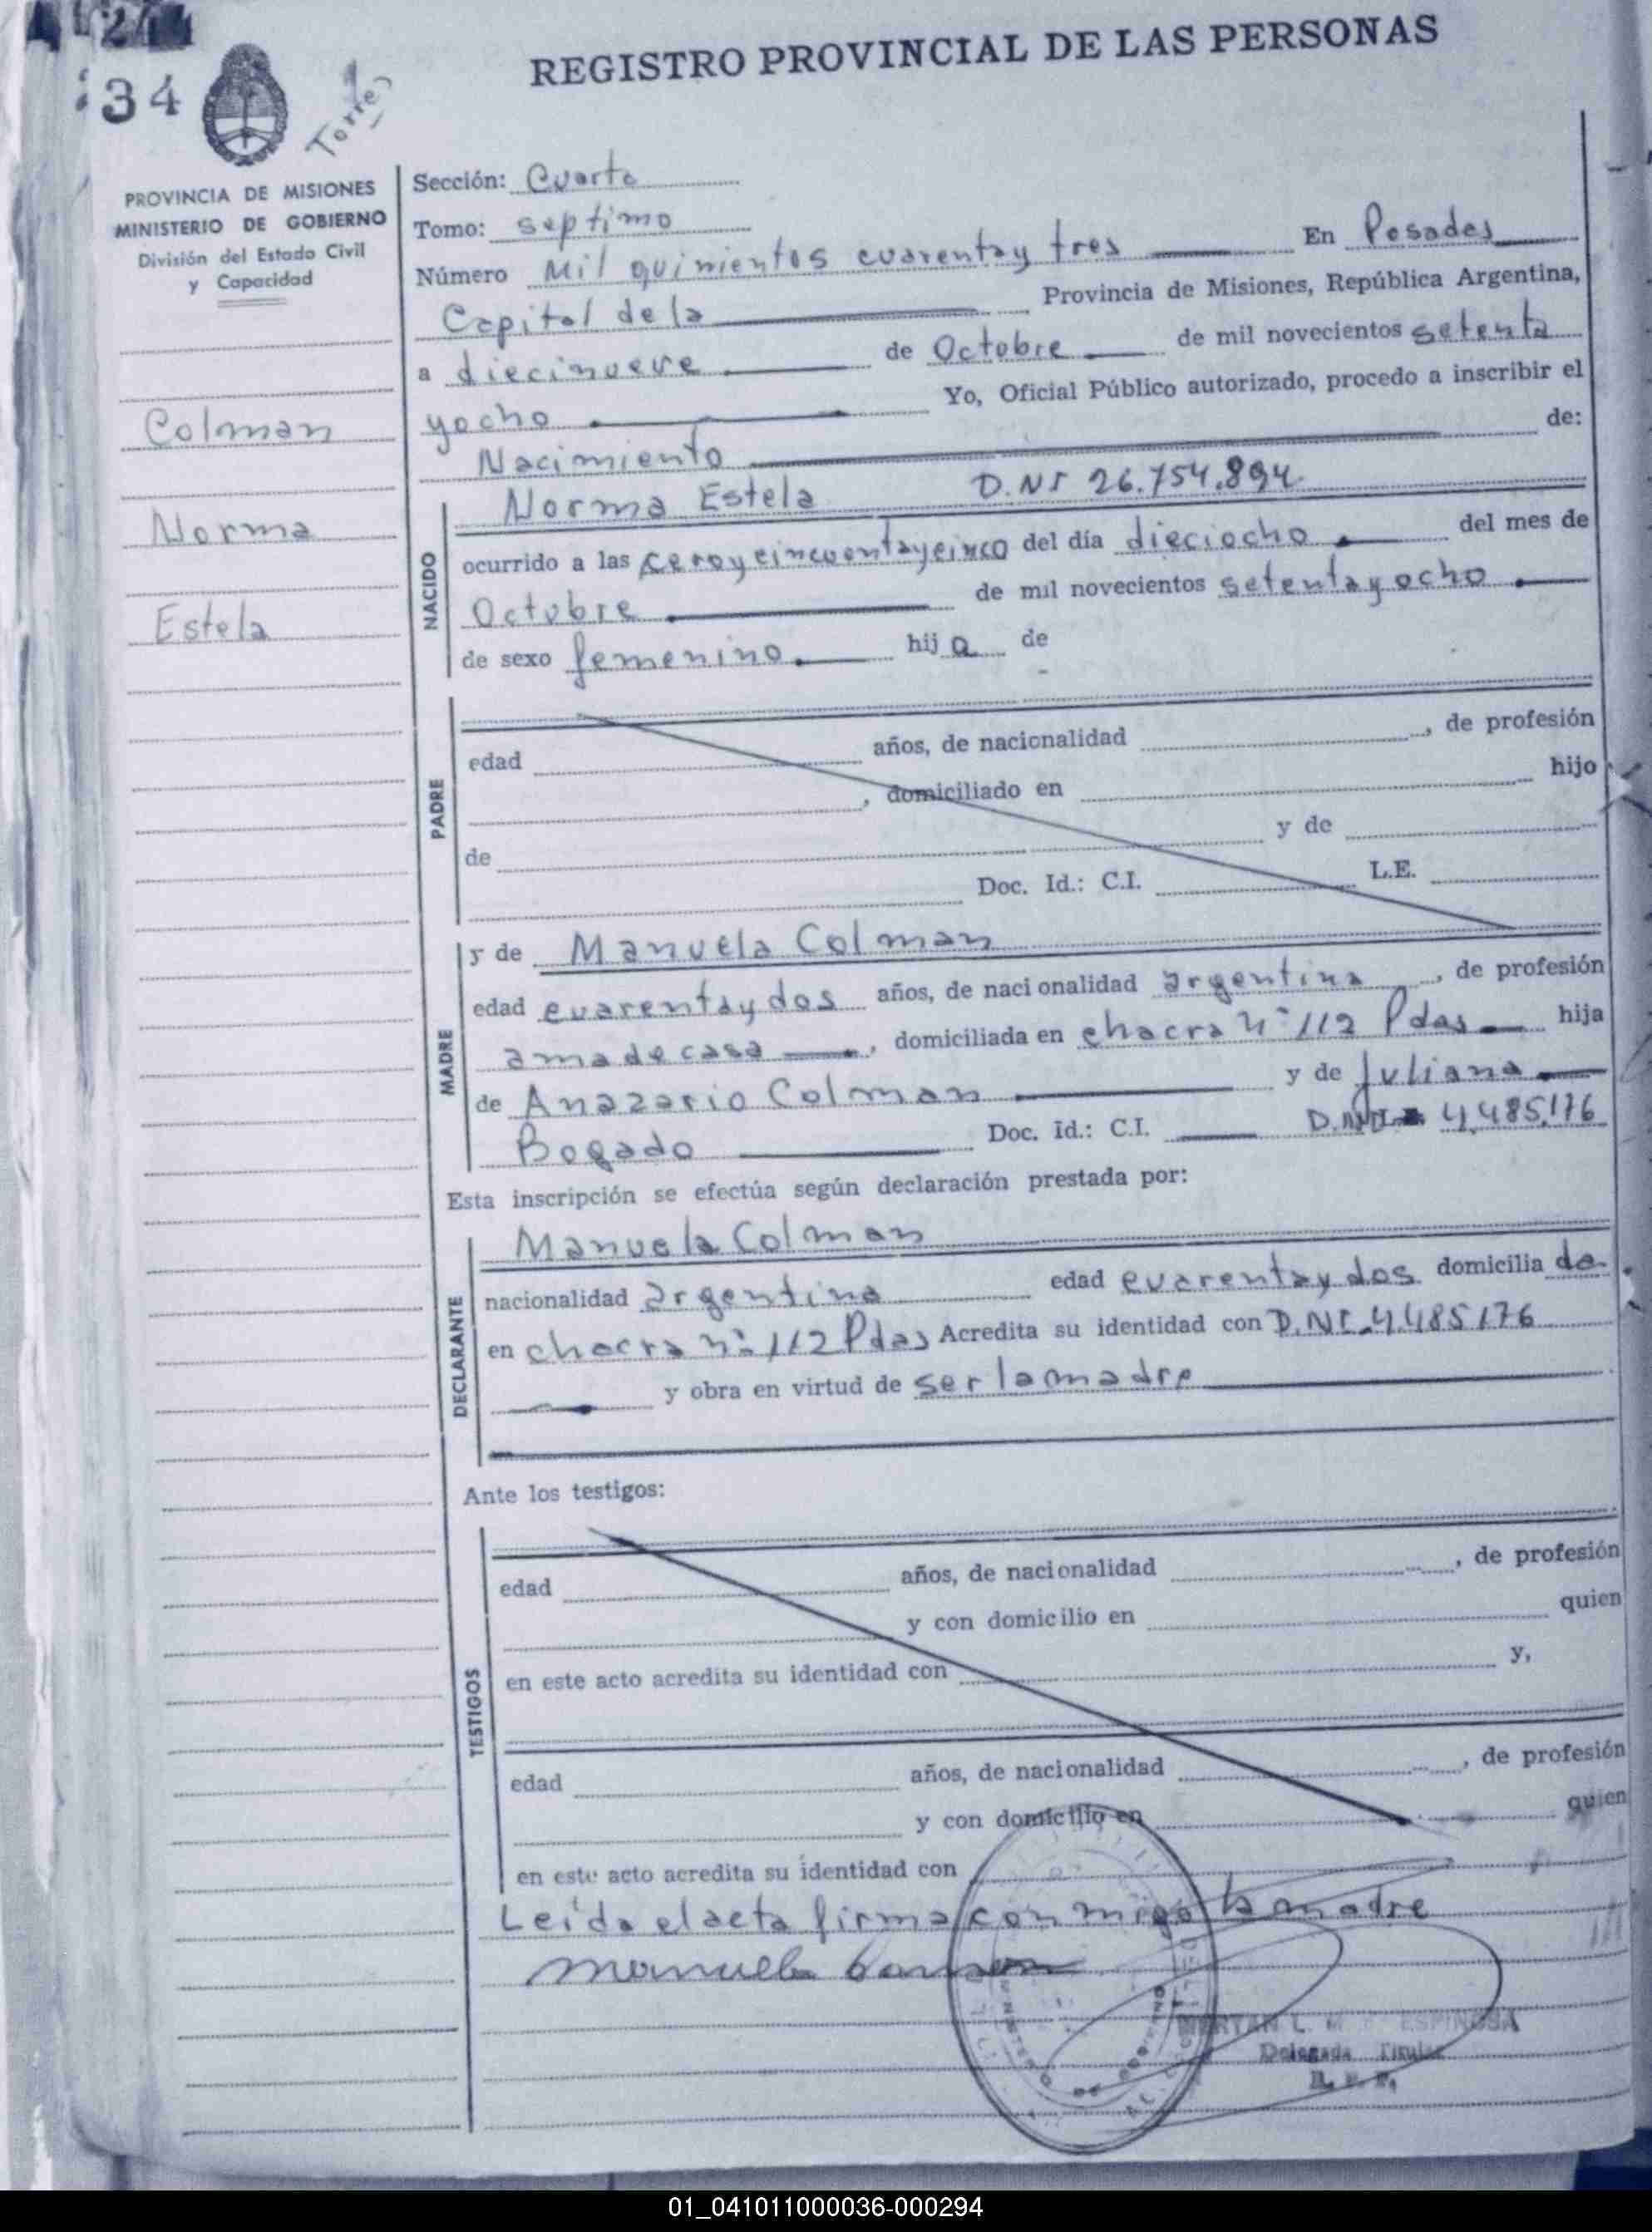 34
Torres
REGISTRO PROVINCIAL DE LAS PERSONAS
PROVINCIA DE MISIONES
MINISTERIO DE GOBIERNO
División del Estado Civil
y Capacidad
Colman
Norma
Estela
Sección: Cuarta
Tomo: septimo
Número Mil quinientos cuarentay tres En Posadas
Capital de la Provincia de Misiones, República Argentina,
a diecinueve de Octubre de mil novecientos setenta
yocho Yo, Oficial Público autorizado, procedo a inscribir el
Nacimiento de:
NACIDO
Norma Estela D.NI 26.754.894.
ocurrido a las ceroycincuentaycinco del día dieciocho del mes de
Octubre de mil novecientos setentayocho
de sexo femenino. hij a de
PADRE
edad años, de nacionalidad , de profesión
, domiciliado en hijo
de y de
Doc. Id.: C.I. L.E.
MADRE
y de Manuela Colman
edad cuarentaydos años, de nacionalidad argentina , de profesión
ama de casa , domiciliada en chacra N° 112 Pdas hija
de Anazario Colman y de Juliana
Bogado Doc. Id.: C.I. D.NI 4.485.176
Esta inscripción se efectúa según declaración prestada por:
DECLARANTE
Manuela Colman
nacionalidad argentina edad cuarentaydos domicilia da
en chacra n° 112 Pdas Acredita su identidad con D.NI. 4.485176
y obra en virtud de ser la madre
Ante los testigos:
TESTIGOS
edad años, de nacionalidad , de profesión
y con domicilio en quien
en este acto acredita su identidad con y,
edad años, de nacionalidad , de profesión
y con domicilio en quien
en este acto acredita su identidad con
Leída el acta firma con migo la madre
manuela
ESPINOSA
Delegada Titular
01_041011000036-000294